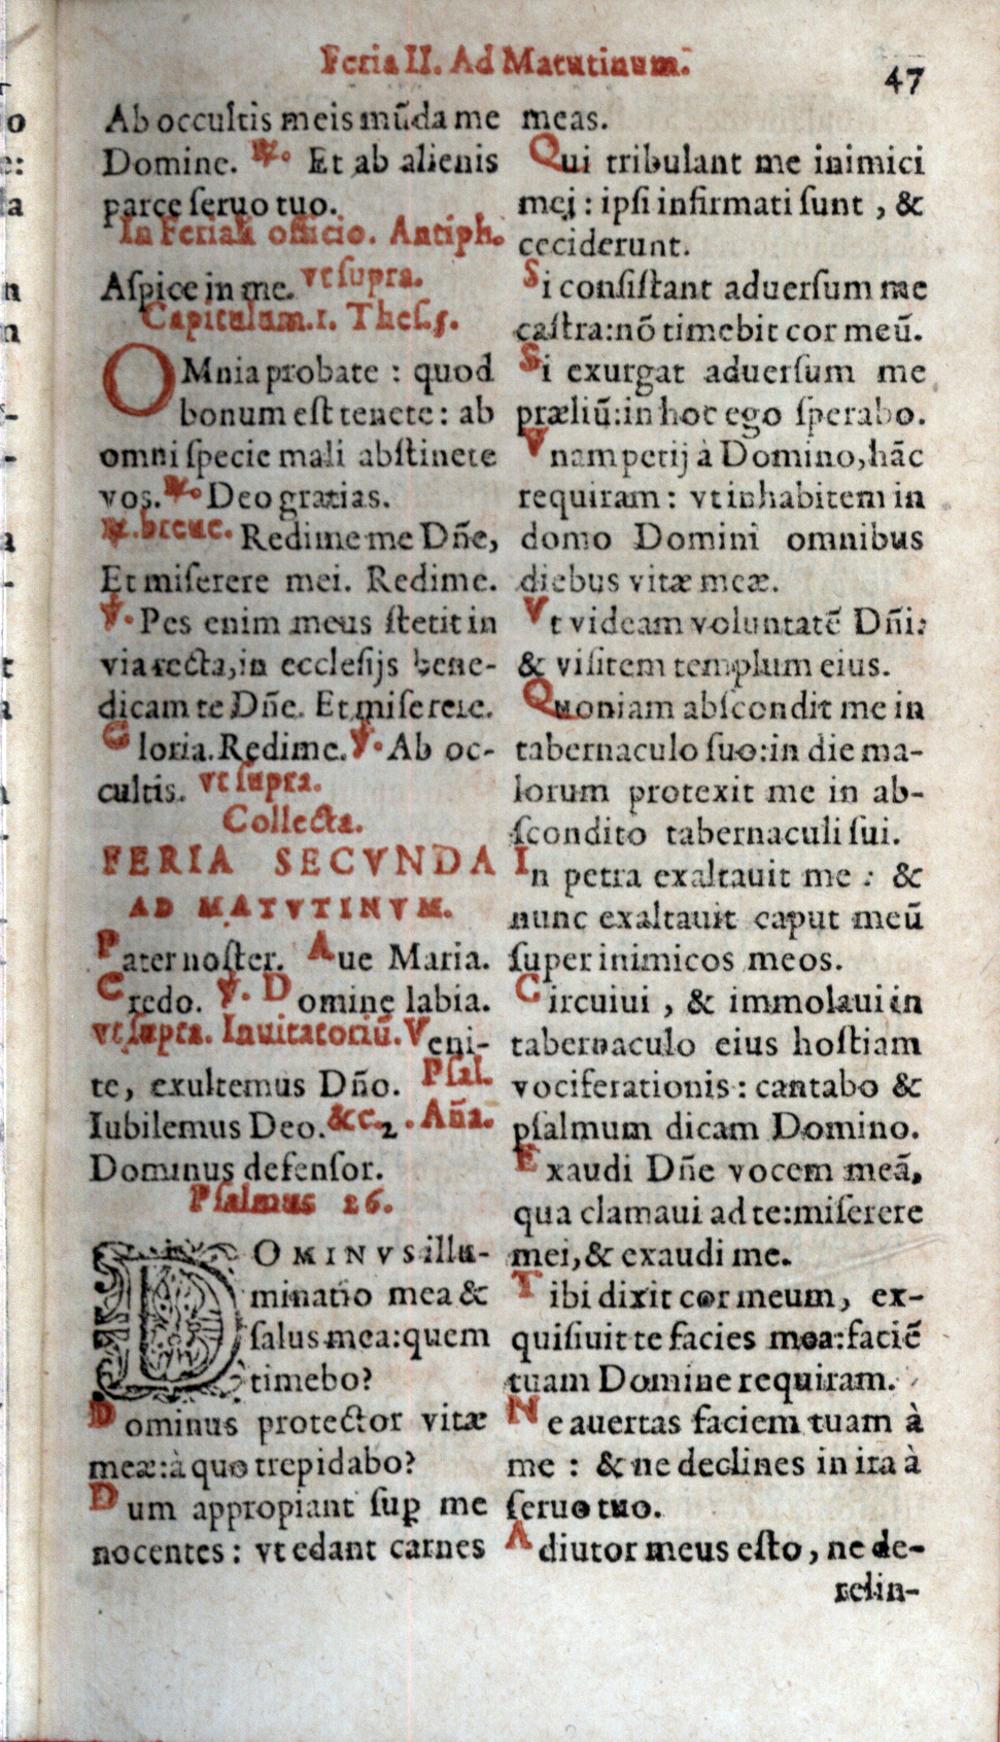 Feria II. Ad Matutinum.
47
Ab occultis meis mũda me
Domine. ℟. Et ab alienis
parce ſeruo tuo.
In Feriali officio. Antiph.
Aſpice in me. vt ſupra.
Capitulum. 1. Theſ. 5.
OMnia probate : quod
bonum eſt tenete : ab
omni ſpecie mali abſtinete
vos. ℟. Deo gratias.
℟. breue. Redime me Dñe,
Et miſerere mei. Redime.
℣. Pes enim meus ſtetit in
via recta, in eccleſijs bene-
dicam te Dñe. Et miſerere.
Gloria. Redime. ℣. Ab oc-
cultis. vt ſupra.
Collecta.
FERIA SECVNDA
AD MATVTINVM.
Pater noſter. Aue Maria.
Credo. ℣. Domine labia.
vt ſupra. Inuitatoriũ. Veni-
te, exultemus Dño. Pſal.
Iubilemus Deo. &c. 2. Aña.
Dominus defenſor.
Pſalmus 26.
DOMINVS illu-
minatio mea &
ſalus mea: quem
timebo?
Dominus protector vitæ
meæ: à quo trepidabo?
Dum appropiant ſuꝑ me
nocentes : vt edant carnes
meas.
Qui tribulant me inimici
mei : ipſi infirmati ſunt , &
ceciderunt.
Si conſiſtant aduerſum me
caſtra: nõ timebit cor meũ.
Si exurgat aduerſum me
præliũ: in hoc ego ſperabo.
Vnam petij à Domino, hãc
requiram : vt inhabitem in
domo Domini omnibus
diebus vitæ meæ.
Vt videam voluntatẽ Dñi:
& viſitem templum eius.
Quoniam abſcondit me in
tabernaculo ſuo: in die ma-
lorum protexit me in ab-
ſcondito tabernaculi ſui.
In petra exaltauit me : &
nunc exaltauit caput meũ
ſuper inimicos meos.
Circuiui , & immolaui in
tabernaculo eius hoſtiam
vociferationis : cantabo &
pſalmum dicam Domino.
Exaudi Dñe vocem meã,
qua clamaui ad te: miſerere
mei, & exaudi me.
Tibi dixit cor meum, ex-
quiſiuit te facies mea: faciẽ
tuam Domine requiram.
Ne auertas faciem tuam à
me : & ne declines in ira à
ſeruo tuo.
Adiutor meus eſto, ne de-
relin-